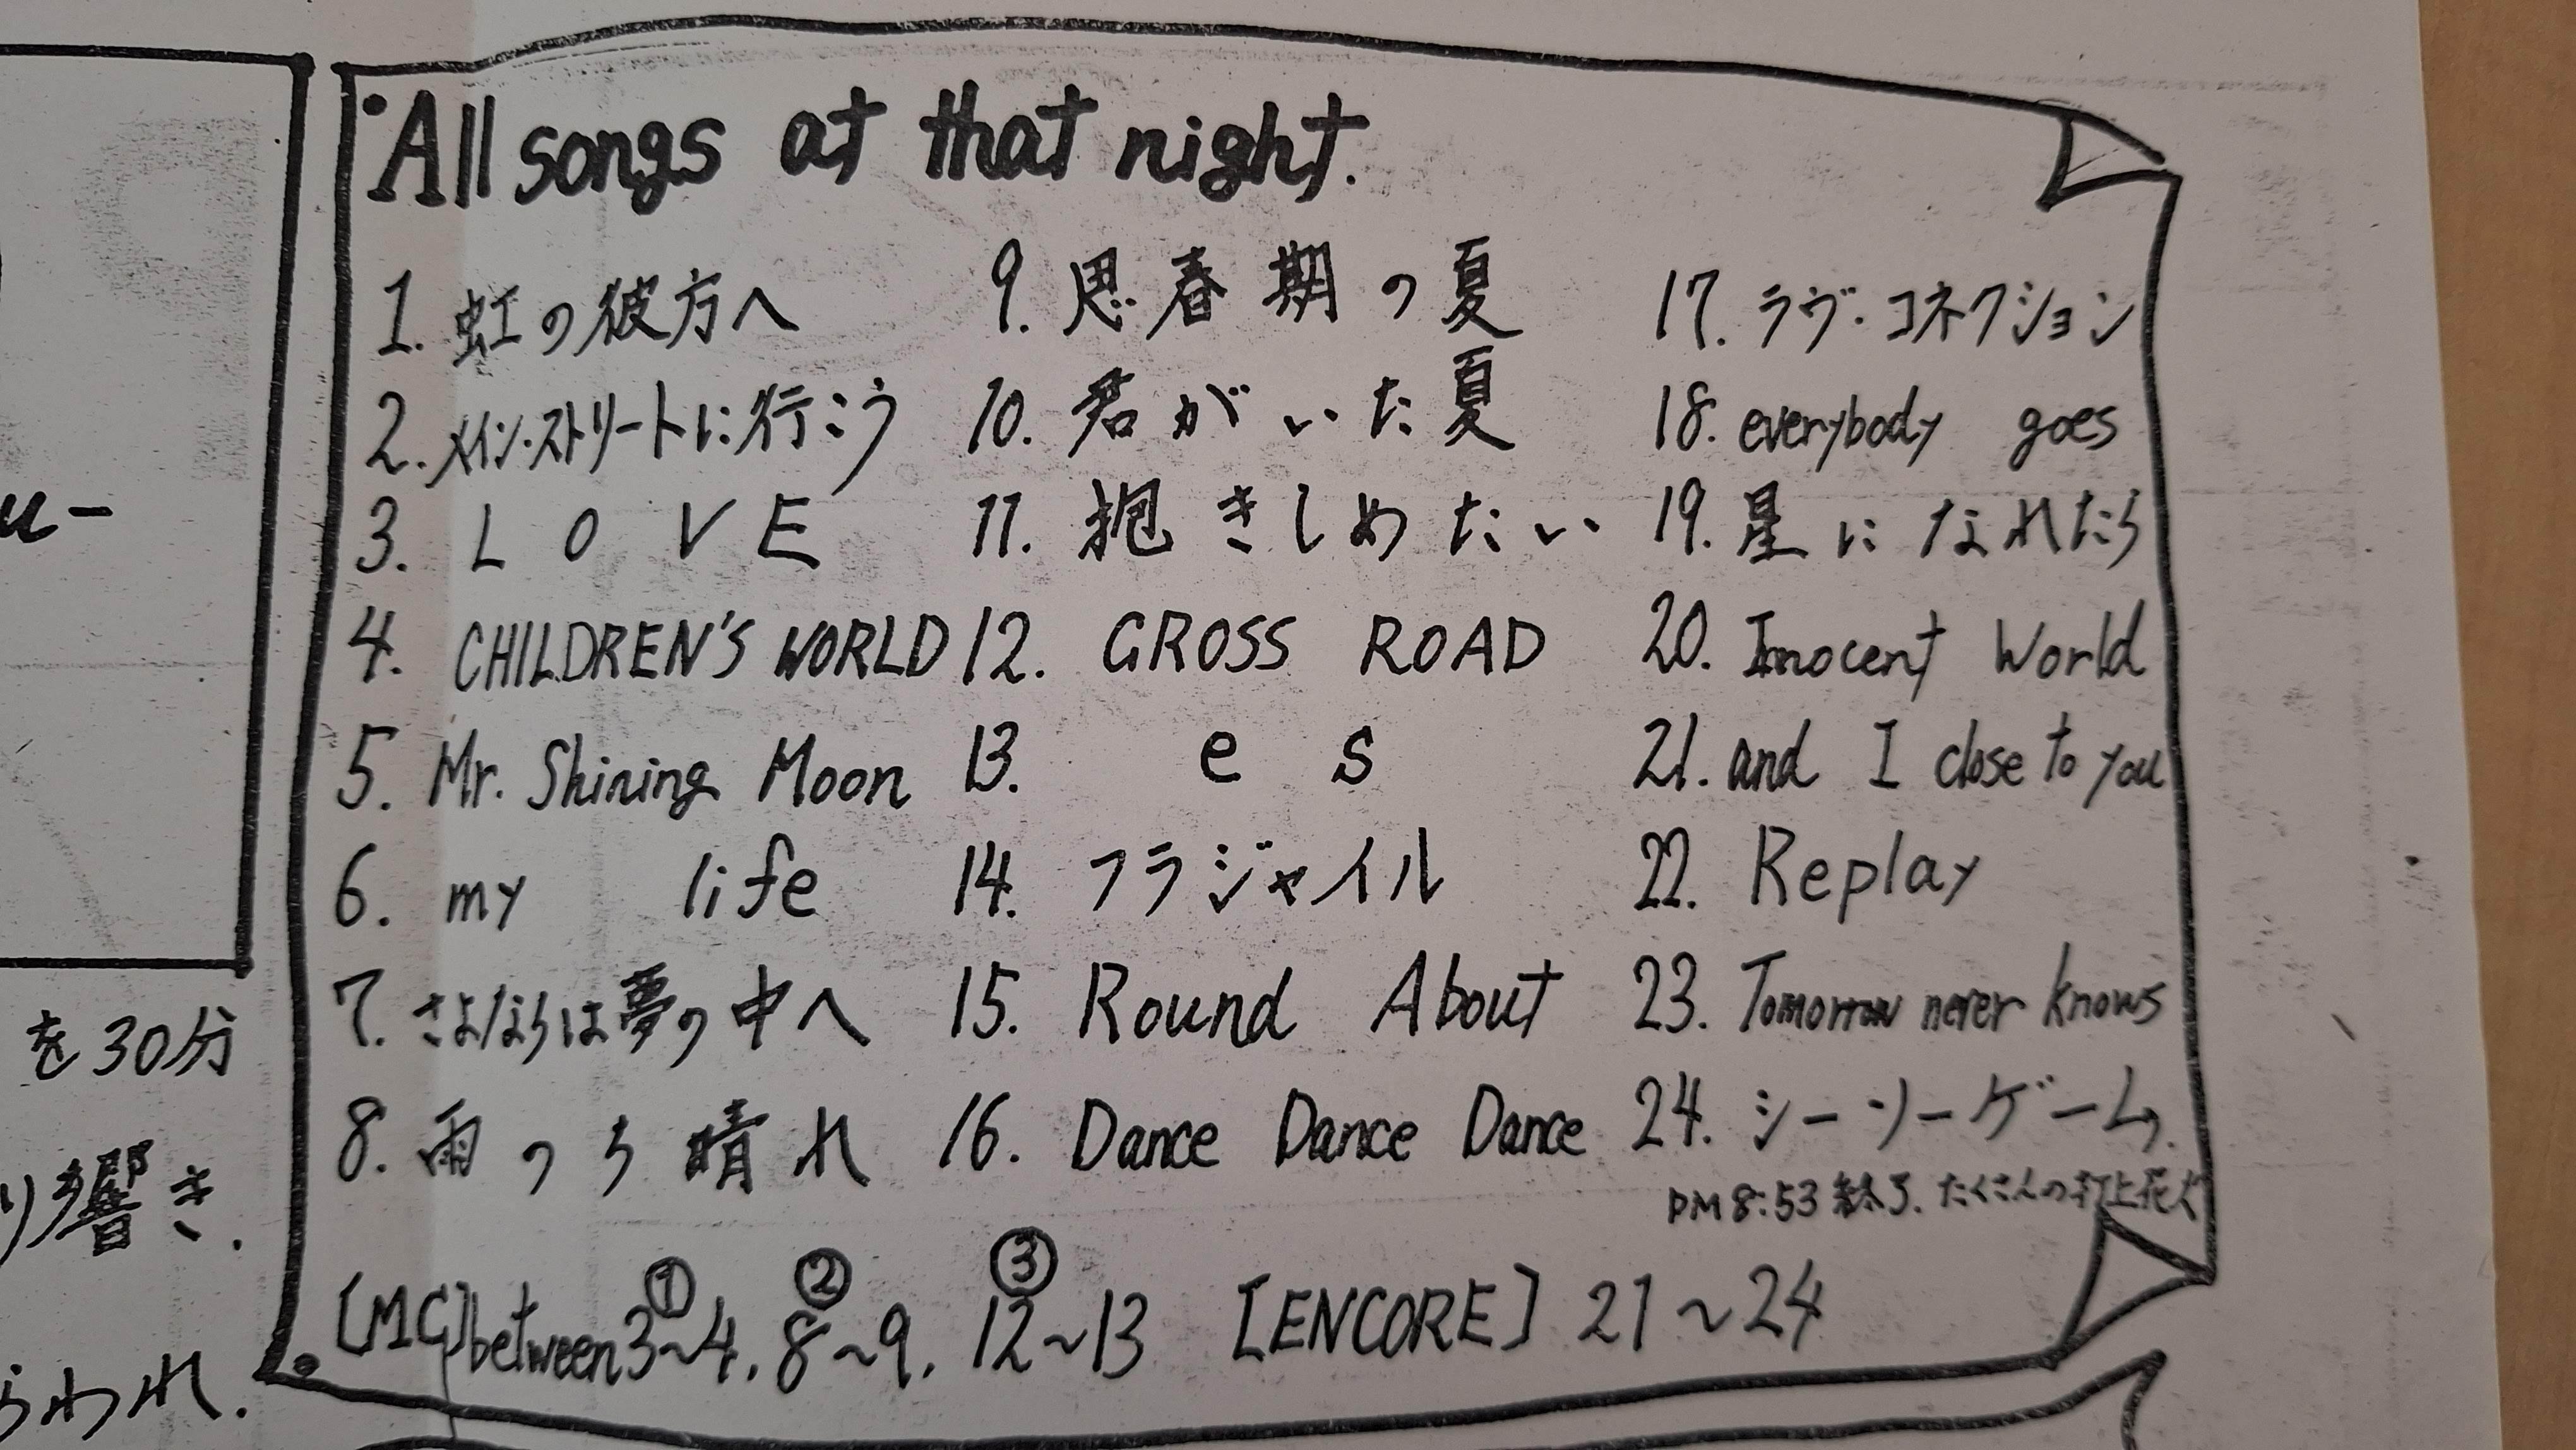 All songs at that night.
1. 虹の彼方へ
2. メイン・ストリートに行こう
3. LOVE
4. CHILDREN'S WORLD
5. Mr. Shining Moon
6. my life
7. さよならは夢の中へ
8. 雨のち晴れ
9. 思春期の夏
10. 君がいた夏
11. 抱きしめたい
12. CROSS ROAD
13. es
14. フラジャイル
15. Round About
16. Dance Dance Dance
17. ラヴ・コネクション
18. everybody goes
19. 星になれたら
20. Innocent World
21. and I close to you
22. Replay
23. Tomorrow never knows
24. シーソーゲーム.
PM 8:53 終了. たくさんの打上花火
① ② ③
[MC] between 3~4, 8~9, 12~13 [ENCORE] 21~24
u-
を30分
り響き.
われ.